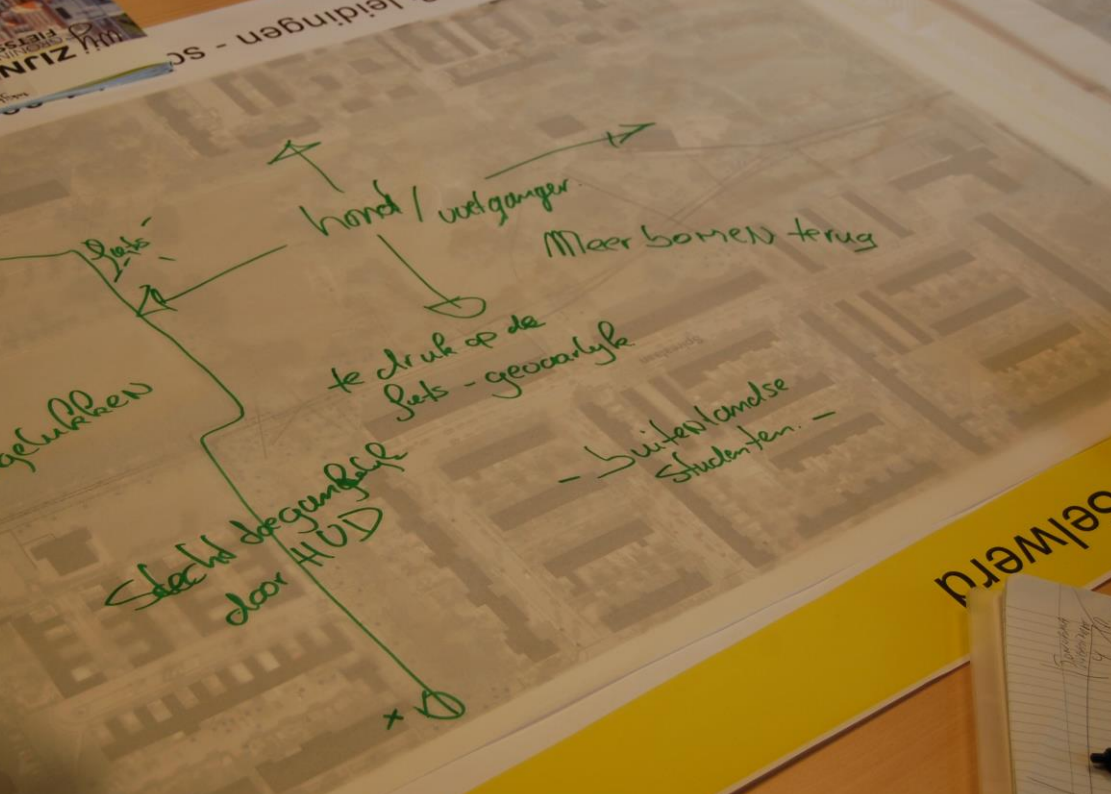 leidingen - sc
ZIJN
FIETS
hond / voetganger.
fiets
Meer bomen terug
te druk op de
fiets - gevaarlijk
gelukken
- Buitenlandse
studenten. -
Slecht toegankelijk
door HUD
x
elwerd